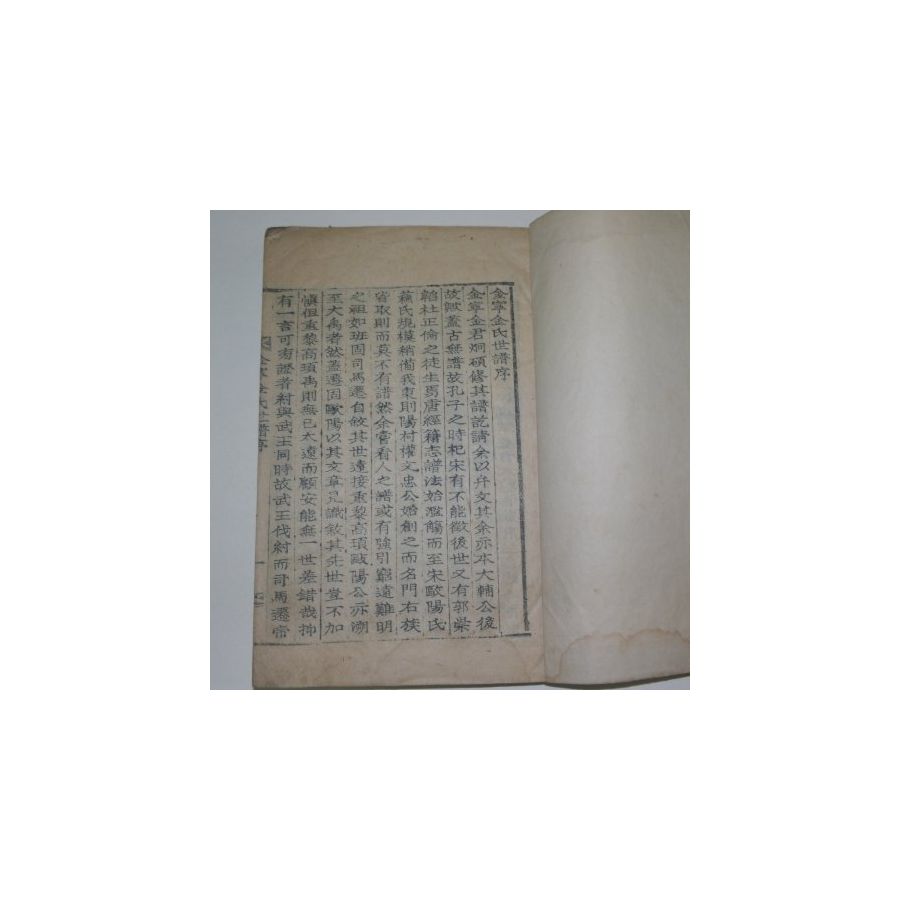 金寧金氏世譜序
金寧金君炯碩修其譜訖請余以弁文其余亦本大輔公後
故歟蓋古無譜故孔子之時杞宋有不能徵後世又有郭崇
韜杜正倫之徒生焉唐經籍志譜法始濫觴而至宋歐陽氏
蘓氏規模稍備我東則陽村權文忠公始創之而名門右族
皆取則而莫不有譜然余嘗看人之譜或有強引窮遠難明
之祖如班固司馬遷自敘其世遠接重黎高頊歐陽公亦溯
至大禹者然蓋遷固歐陽以其文章足識敘其先世豈不加
愼但重黎高頊禹則無已太遠而顧安能無一世差錯哉抑
有一言可考證者紂與武王同時故武王伐紂而司馬遷帝
金寧金氏世譜序
一